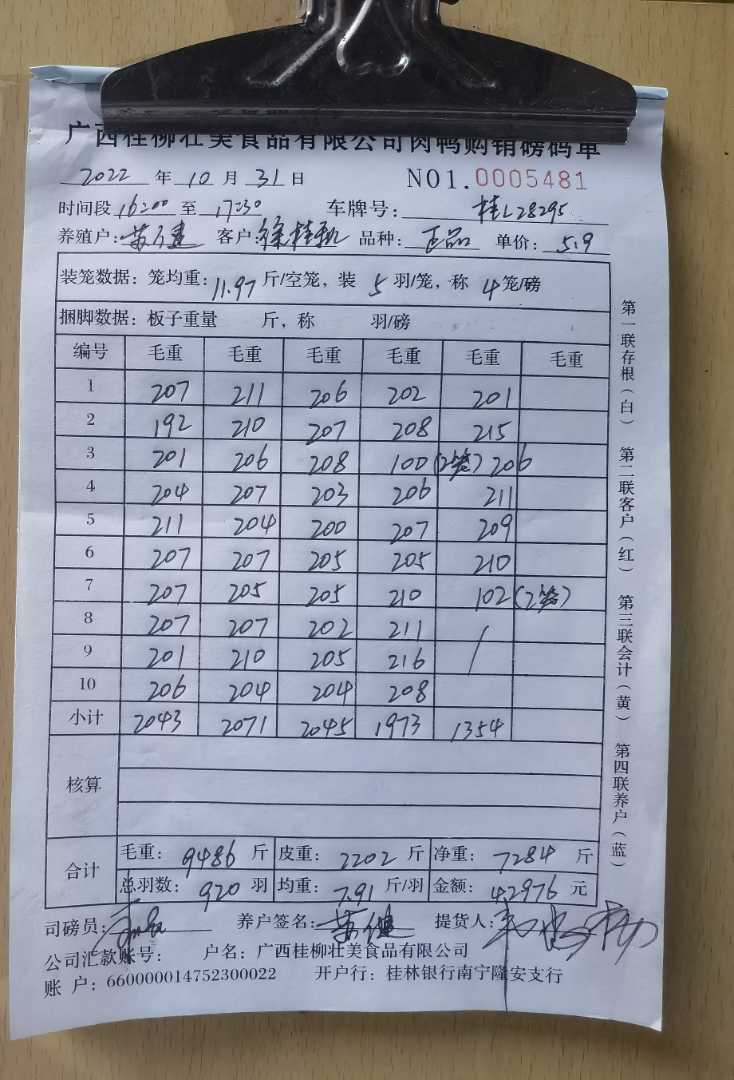 广西桂柳壮美食品有限公司肉鸭购销磅码单
2022 年 10 月 31 日 NO1.0005481
时间段 16:00 至 17:30 车牌号: 桂L28295
养殖户: 客户: 徐桂 品种: 正品 单价: 5.9
装笼数据: 笼均重: 11.97 斤/空笼, 装 5 羽/笼, 称 4 笼/磅
捆脚数据: 板子重量 斤, 称 羽/磅
编号 毛重 毛重 毛重 毛重 毛重 毛重
1 207 211 206 202 201
2 192 210 207 208 215
3 201 206 208 100(2笼) 206
4 204 207 203 206 211
5 211 204 200 207 209
6 207 207 205 205 210
7 207 205 205 210 102(2笼)
8 207 207 202 211 /
9 201 210 205 216
10 206 204 204 208
小计 2043 2071 2045 1973 1354
核算
合计 毛重: 9486 斤 皮重: 2202 斤 净重: 7284 斤
总羽数: 920 羽 均重: 7.91 斤/羽 金额: 42976 元
司磅员: 养户签名: 提货人:
公司汇款账号: 户名: 广西桂柳壮美食品有限公司
账 户: 660000014752300022 开户行: 桂林银行南宁隆安支行
第一联存根(白) 第二联客户(红) 第三联会计(黄) 第四联养户(蓝)